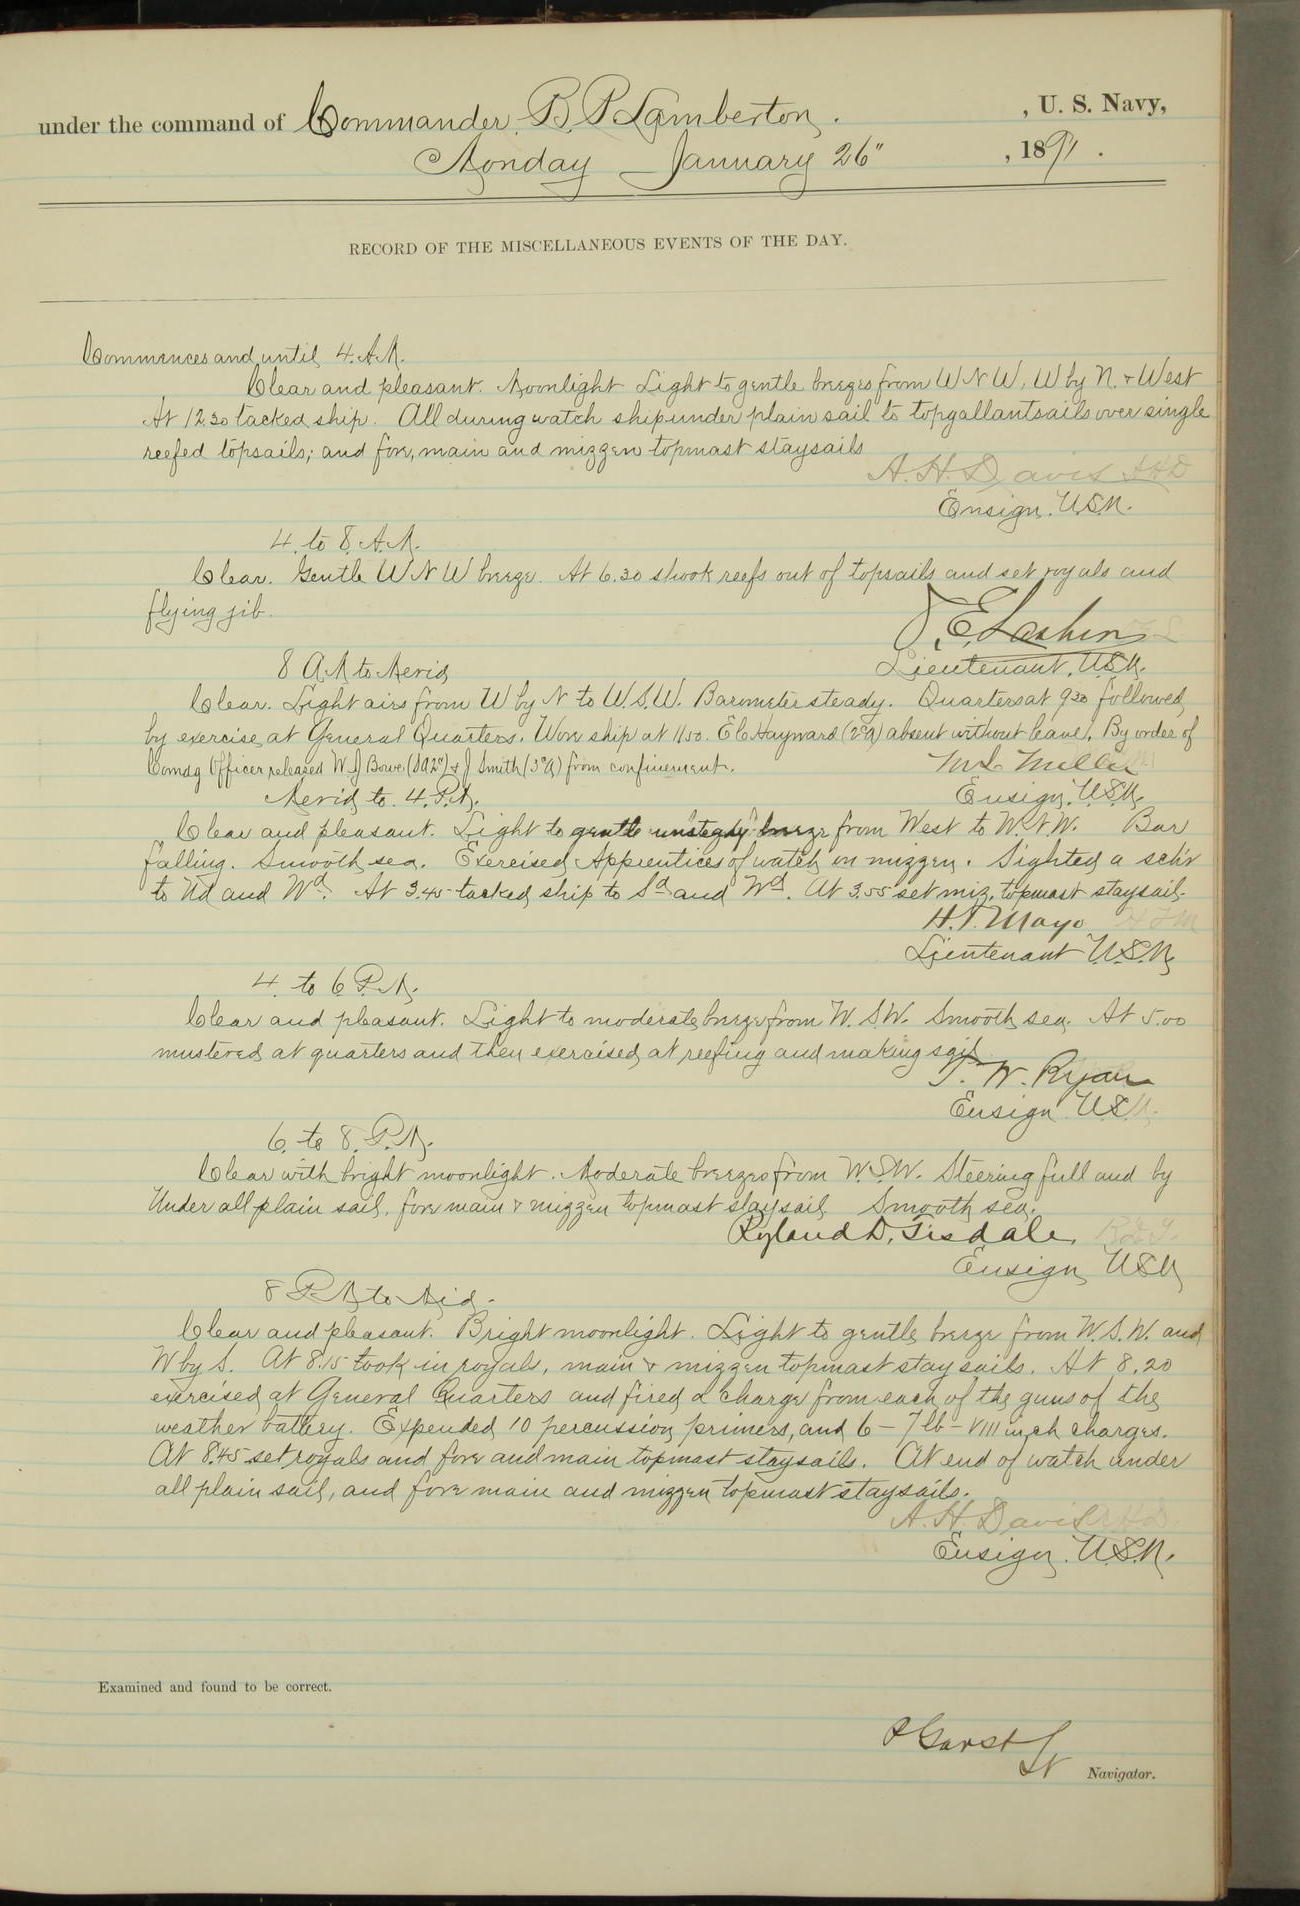 under the command of Commander B. P. Lamberton, U. S. Navy,
Monday January 26", 1891.
RECORD OF THE MISCELLANEOUS EVENTS OF THE DAY.
Commences and until 4. A.M.
Clear and pleasant. Moonlight Light to gentle breezes from W N W, W by N. & West
At 12.30 tacked ship. All during watch ship under plain sail to topgallantsails over single
reefed topsails; and fore, main and mizzen topmast staysails
A. H. Davis A H D
Ensign. U.S.N.
4. to 8. A.M.
Clear. Gentle W N W breeze. At 6.30 shook reefs out of topsails and set royals and
flying jib.
Lieutenant, U.S.N.
8 A M to Merid
Clear. Light airs from W by N to W.S.W. Barometer steady. Quarters at 9 30 followed
by exercise at General Quarters. Wore ship at 11 50. E C Hayward (2"a) absent without leave. By order of
Comdg Officer released W J Bowe (Sa2") & J Smith (3"a) from confinement.
Ensign. U.S.N.
Merid to. 4. P.M.
Clear and pleasant. Light to gentle unsteady breeze from West to W.N.W. Bar
falling. Smooth sea. Exercised Apprentices of watch on mizzen. Sighted a sch'r
to Nd and Wd. At 3.45 tacked ship to Sd and Wd. At 3.55 set miz. topmast staysail.
H. T. Mayo H T M
Lieutenant U.S.N.
4. to 6 P.M.
Clear and pleasant. Light to moderate breeze from W. S.W. Smooth sea. At 5.00
mustered at quarters and then exercised at reefing and making sail
T. W. Ryan
Ensign U.S.N.
6. to 8. P.M.
Clear with bright moonlight. Moderate breezes from W.S.W. Steering full and by
Under all plain sail, fore main & mizzen topmast staysail Smooth sea.
Ryland D. Tisdale. R D T.
Ensign U S N
8 P.M to Mid.
Clear and pleasant. Bright moonlight. Light to gentle breeze from W.S.W. and
W by S. At 8.15 took in royals, main & mizzen topmast staysails. At 8.20
exercised at General Quarters and fired a charge from each of the guns of the
weather battery. Expended 10 percussion primers, and 6 - 7 lb - VIII inch charges.
At 8.45 set royals and fore and main topmast staysails. At end of watch under
all plain sail, and fore main and mizzen topmast staysails.
A. H. Davis A H D.
Ensign. U.S.N.
Examined and found to be correct.
Garst
Lt Navigator.